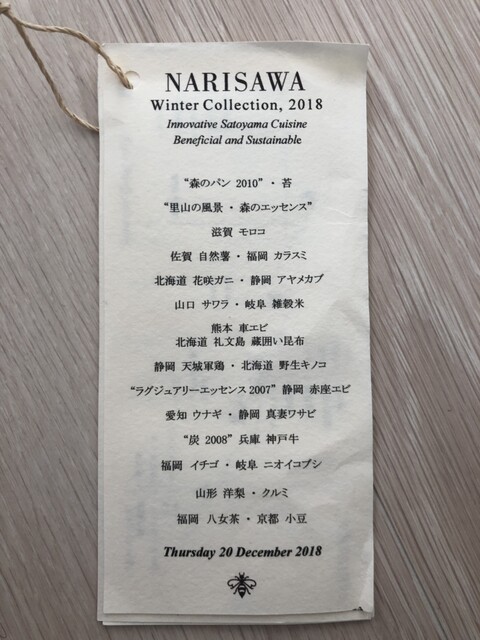 NARISAWA
Winter Collection, 2018
Innovative Satoyama Cuisine
Beneficial and Sustainable
“森のパン 2010”・苔
“里山の風景・森のエッセンス”
滋賀 モロコ
佐賀 自然薯・福岡 カラスミ
北海道 花咲ガニ・静岡 アヤメカブ
山口 サワラ・岐阜 雑穀米
熊本 車エビ
北海道 礼文島 蔵囲い昆布
静岡 天城軍鶏・北海道 野生キノコ
“ラグジュアリーエッセンス2007” 静岡 赤座エビ
愛知 ウナギ・静岡 真妻ワサビ
“炭 2008” 兵庫 神戸牛
福岡 イチゴ・岐阜 ニオイコブシ
山形 洋梨・クルミ
福岡 八女茶・京都 小豆
Thursday 20 December 2018